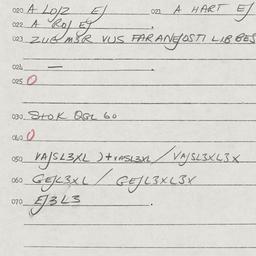 020 A LOJZ EJ 021 A HART EJ
022 A BOJ EJ
023 ZUB MSR VUS FARANEJOSTI LIB BES
024 —
025 0
030 STOK QGL 60
040 0
050 VAJSL3XL / VAJSL3XL3X
060 GEJL3XL / GEJL3XL3X
070 EJ3L3